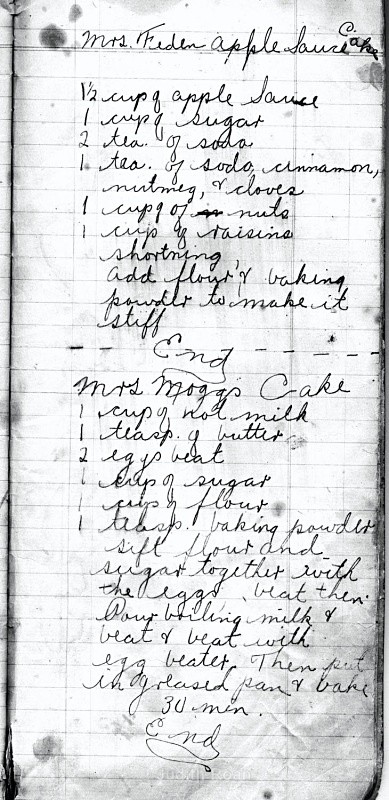 Mrs. Feden Apple Sauce Cake
1½ cup of apple Sauce
1 cup of sugar
2 tea. of soda
1 tea. of soda, cinnamon,
nutmeg, & cloves
1 cup of nuts
1 cup of raisins
shortning
add flour & baking
powder to make it
stiff
End
Mrs Moggs Cake
1 cup of hot milk
1 teasp. of butter
2 eggs beat
1 cup of sugar
1 cup of flour
1 teasp. baking powder
sift flour and
sugar together with
the eggs, beat then.
Pour boiling milk &
beat & beat with
egg beater. Then put
in greased pan & bake
30 min.
End